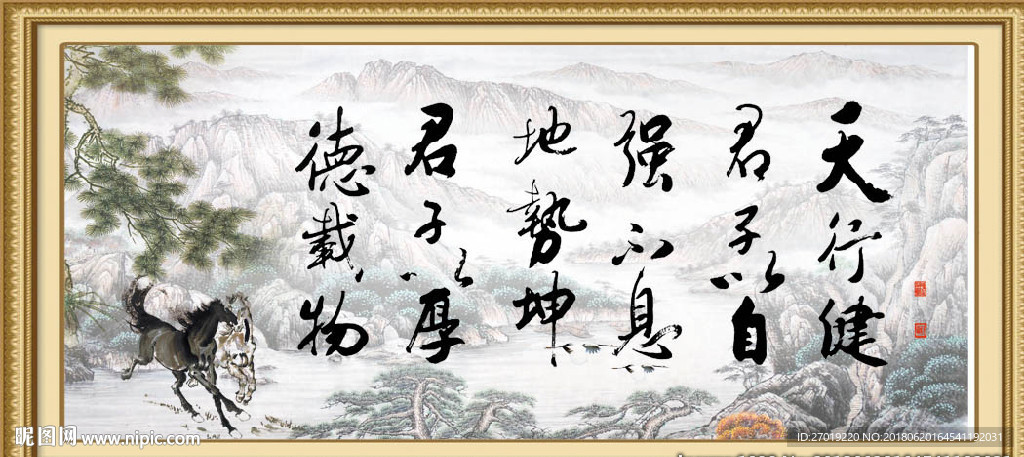 天行健
君子以自
强不息
地势坤
君子以厚
德载物
昵图网 www.nipic.com
ID:27019220 NO:20180620164541192031